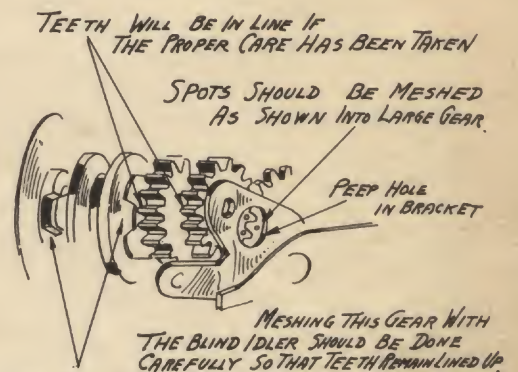 TEETH WILL BE IN LINE IF
THE PROPER CARE HAS BEEN TAKEN
SPOTS SHOULD BE MESHED
AS SHOWN INTO LARGE GEAR.
PEEP HOLE
IN BRACKET
MESHING THIS GEAR WITH
THE BLIND IDLER SHOULD BE DONE
CAREFULLY SO THAT TEETH REMAIN LINED UP